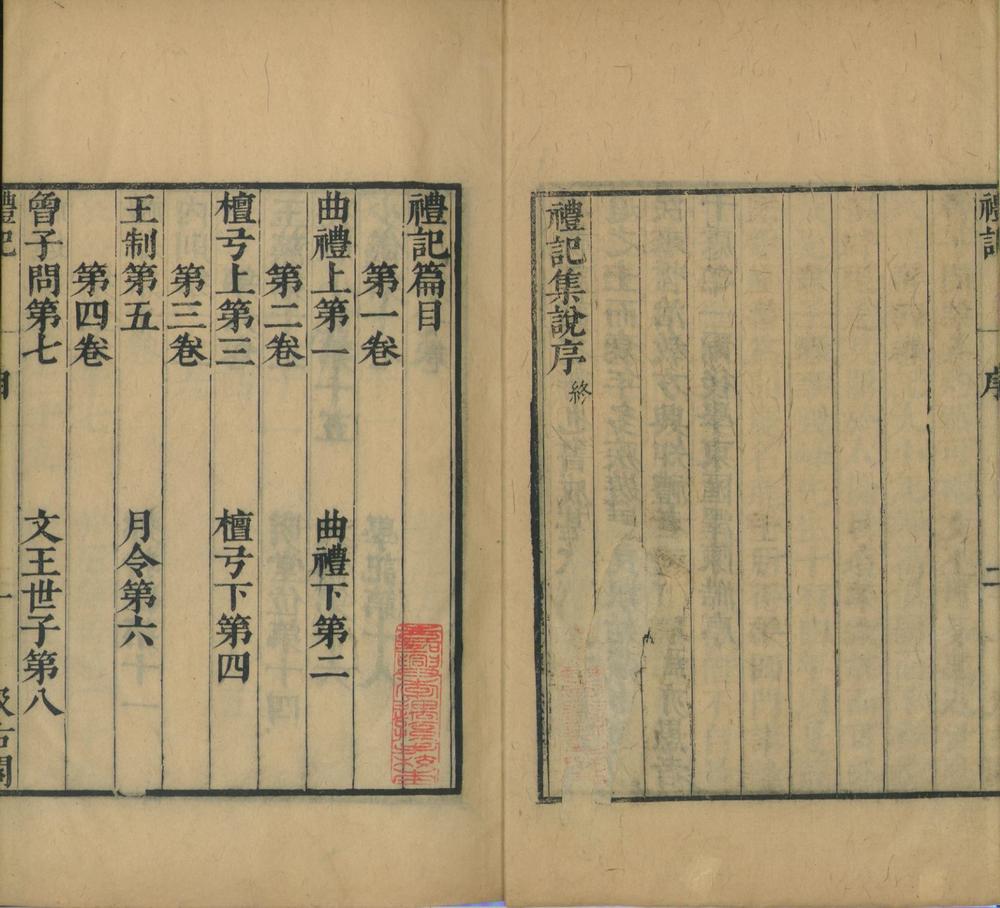 禮記集說序終
禮記篇目
第一卷
曲禮上第一 曲禮下第二
第二卷
檀弓上第三 檀弓下第四
第三卷
王制第五 月令第六
第四卷
曾子問第七 文王世子第八